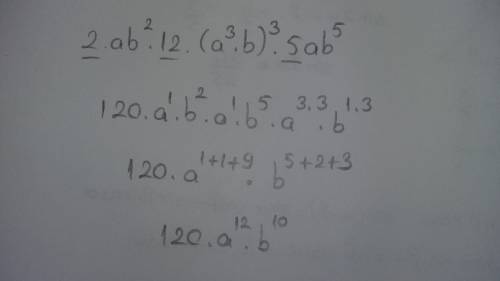 2.ab².12.(a³.b)³.5ab⁵
120.a¹.b².a¹.b⁵.a³·³.b¹·³
120.a¹⁺¹⁺⁹.b⁵⁺²⁺³
120.a¹².b¹⁰